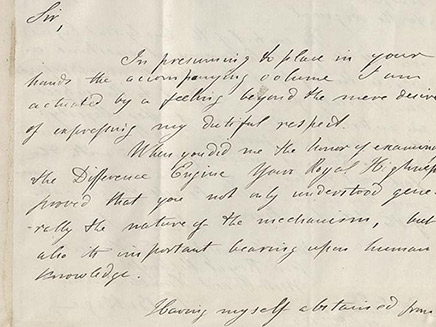 Sir,
In presuming to place in your
hands the accompanying volume I am
actuated by a feeling beyond the mere desire
of expressing my dutiful respect.
When you did me the honor of examini
the Difference Engine Your Royal Highness
proved that you not only understood gene-
rally the nature of the mechanism, but
also its important bearing upon human
knowledge.
Having myself abstained from